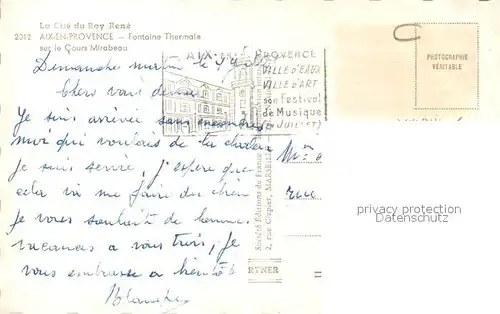 La Cité du Roy René
2012 AIX-EN-PROVENCE — Fontaine Thermale
sur le Cours Mirabeau
AIX-EN-PROVENCE
VILLE D'EAUX
VILLE D'ART
son Festival
de Musique
(JUILLET)
PHOTOGRAPHIE
VÉRITABLE
Dimanche matin le
Je suis arrivée sans encombres
moi qui voulais de la chaleur
je suis servie, j'espère que
cela va me faire du bien
je vous souhaite de bonnes
vacances a vous trois, je
vous embrasse a bientôt
Blanche
Société Éditions de France
2, rue Clapier, MARSEILLE
rue
RYNER
privacy protection
Datenschutz